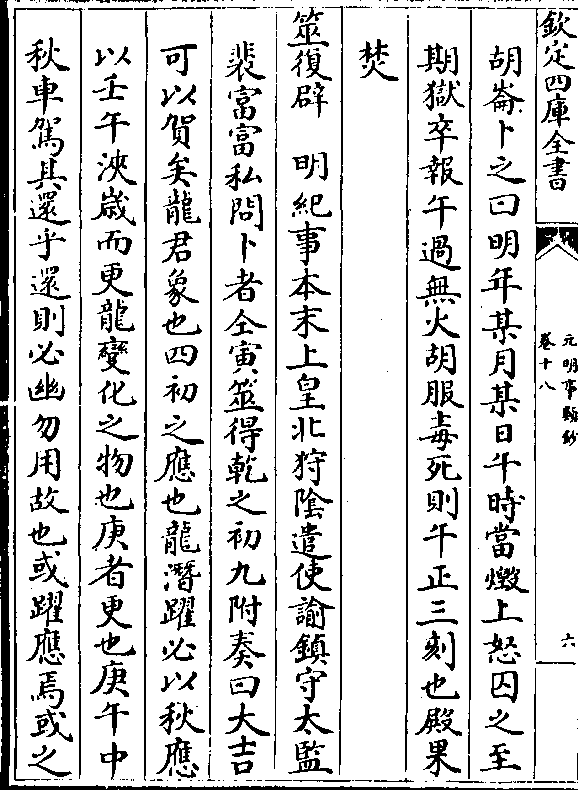 欽定四庫全書
元明事類鈔
卷十八
六
胡崙卜之曰明年某月某日午時當燬上怒囚之至
期獄卒報午過無火胡服毒死則午正三刻也殿果
焚
筮復辟　明紀事本末上皇北狩陰遣使諭鎮守太監
裴富富私問卜者仝寅筮得乾之初九附奏曰大吉
可以賀矣龍君象也四初之應也龍潛躍必以秋應
以壬午浹歲而更龍變化之物也庚者更也庚午中
秋車駕其還乎還則必幽勿用故也或躍應焉或之